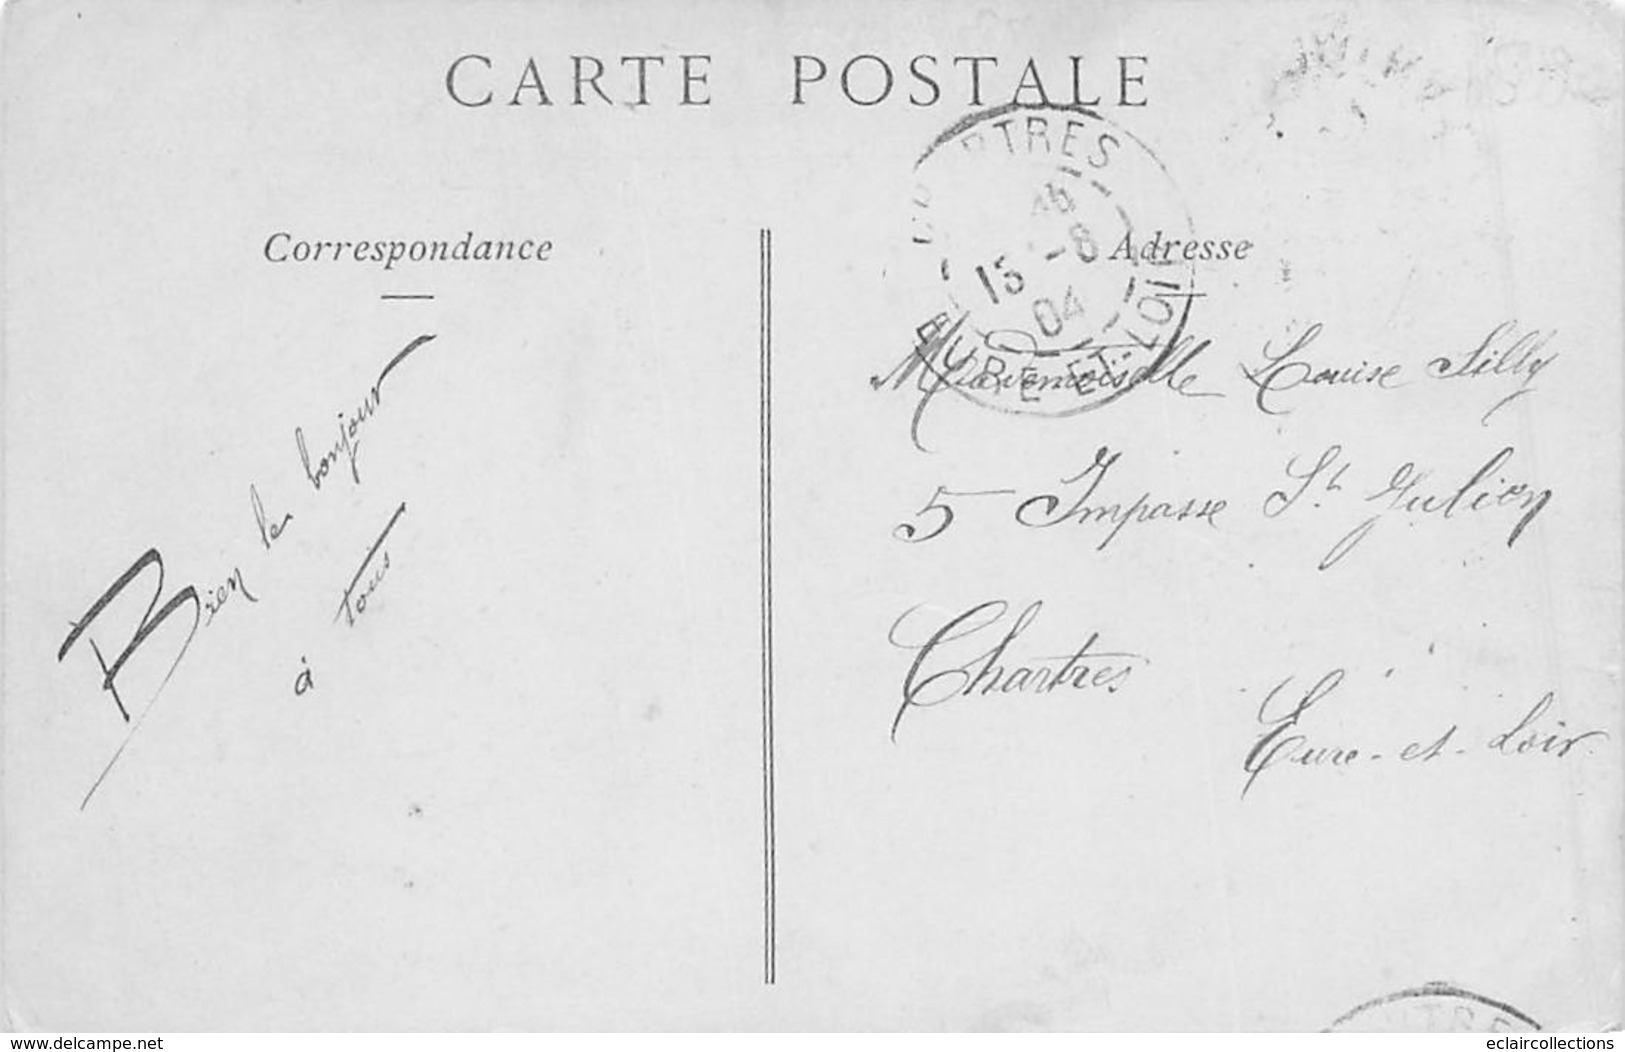 CARTE POSTALE
Correspondance
Bien le bonjour
à tous
Adresse
Mademoiselle Louise Silly
5 Impasse St Julien
Chartres
Eure-et-Loir.
TRES
15 -8
04
EURE-ET-LOIR
TRE
delcampe.net
eclaircollections